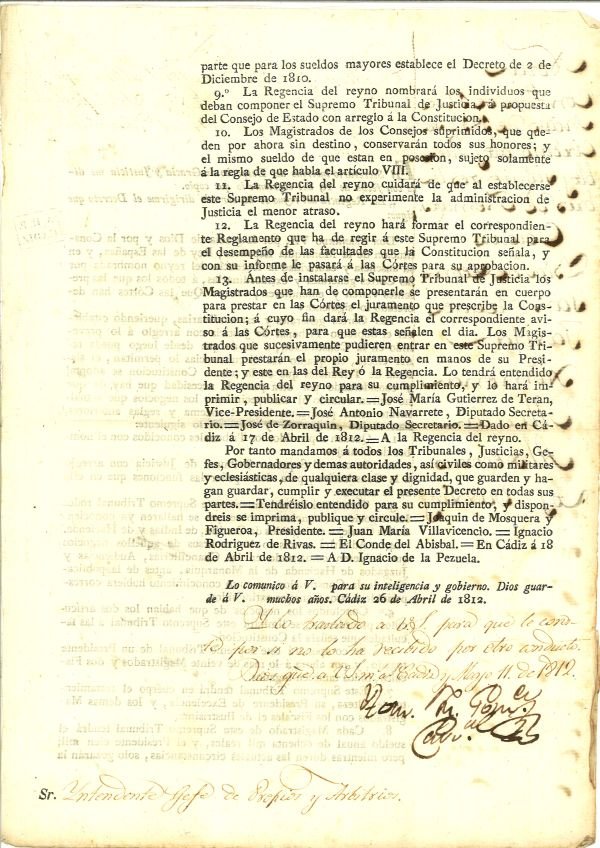 parte que para los sueldos mayores establece el Decreto de 2 de
Diciembre de 1810.
9.º La Regencia del reyno nombrará los individuos que
deban componer el Supremo Tribunal de Justicia, á propuesta
del Consejo de Estado con arreglo á la Constitucion.
10. Los Magistrados de los Consejos suprimidos, que que-
den por ahora sin destino, conservarán todos sus honores; y
el mismo sueldo de que estan en posesion, sujeto solamente
á la regla de que habla el artículo VIII.
11. La Regencia del reyno cuidará de que al establecerse
este Supremo Tribunal no experimente la administracion de
Justicia el menor atraso.
12. La Regencia del reyno hará formar el correspondien-
te Reglamento que ha de regir á este Supremo Tribunal para
el desempeño de las facultades que la Constitucion señala, y
con su informe le pasará á las Córtes para su aprobacion.
13. Ántes de instalarse el Supremo Tribunal de Justicia los
Magistrados que han de componerle se presentarán en cuerpo
para prestar en las Córtes el juramento que prescribe la Cons-
titucion; á cuyo fin dará la Regencia el correspondiente avi-
so á las Córtes, para que estas señalen el dia. Los Magis-
trados que sucesivamente pudieren entrar en este Supremo Tri-
bunal prestarán el propio juramento en manos de su Presi-
dente; y este en las del Rey ó la Regencia. Lo tendrá entendido
la Regencia del reyno para su cumplimiento, y lo hará im-
primir, publicar y circular.=José María Gutierrez de Teran,
Vice-Presidente.=José Antonio Navarrete, Diputado Secreta-
rio.=José de Zorraquin, Diputado Secretario.=Dado en Cá-
diz á 17 de Abril de 1812.=A la Regencia del reyno.
Por tanto mandamos á todos los Tribunales, Justicias, Ge-
fes, Gobernadores y demas autoridades, así civiles como militares
y eclesiásticas, de qualquiera clase y dignidad, que guarden y ha-
gan guardar, cumplir y executar el presente Decreto en todas sus
partes.=Tendréislo entendido para su cumplimiento, y dispon-
dreis se imprima, publique y circule.=Joaquin de Mosquera y
Figueroa, Presidente.= Juan María Villavicencio.= Ignacio
Rodriguez de Rivas.= El Conde del Abisbal.=En Cádiz á 18
de Abril de 1812.=A D. Ignacio de la Pezuela.
Lo comunico á V. para su inteligencia y gobierno. Dios guar-
de á V. muchos años. Cádiz 26 de Abril de 1812.
Y lo traslado a V.S. para que le cons-
te por si no lo ha recibido por otro conducto.
Dios gue. a V.S. m.s a.s Cadiz y Mayo 11. de 1812.
Sr. Yntendente Gefe de Propios y Arbitrios.